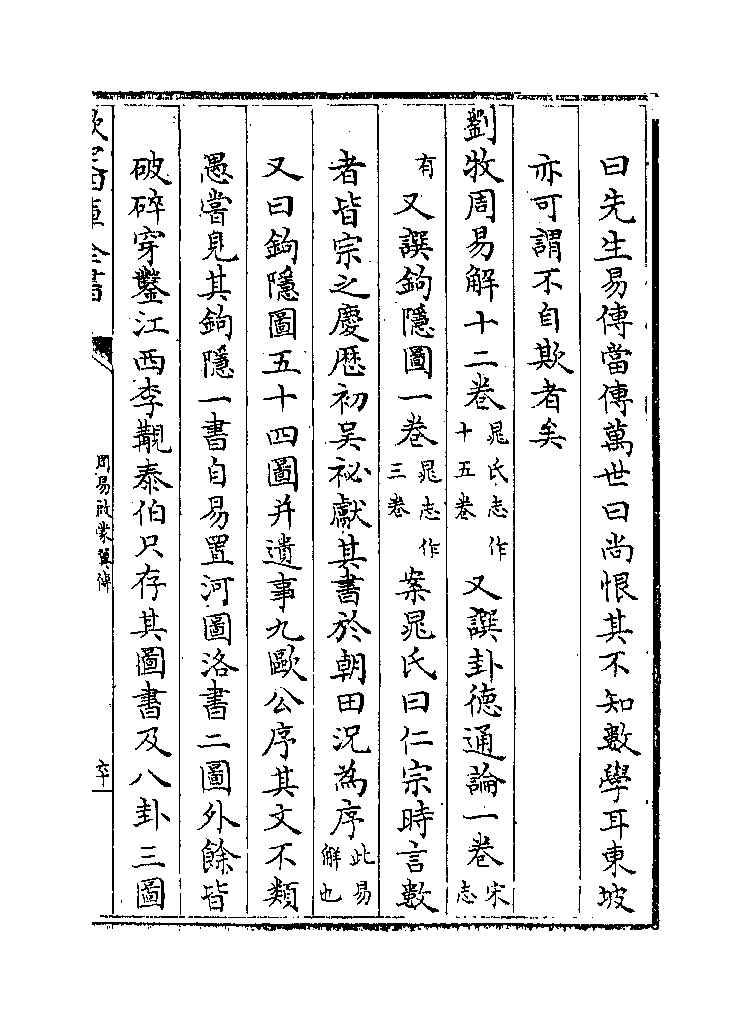 曰先生易傳當傳萬世曰尚恨其不知數學耳東坡
亦可謂不自欺者矣
劉牧周易解十二卷晁氏志作十五卷又譔卦德通論一卷宋志
有又譔鉤隱圖一卷晁志作三卷案晁氏曰仁宗時言數
者皆宗之慶歷初吴祕獻其書於朝田況為序此易解也
又曰鉤隱圖五十四圖并遺事九歐公序其文不類
愚嘗見其鉤隱一書自易置河圖洛書二圖外餘皆
破碎穿鑿江西李覯泰伯只存其圖書及八卦三圖
欽定四庫全書
周易啟蒙翼傳
六十